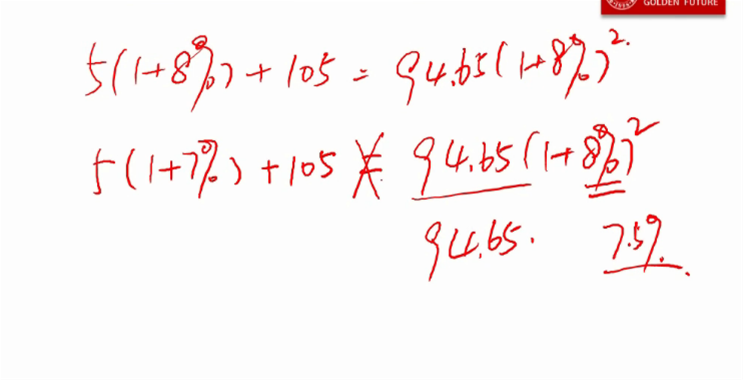 GOLDEN FUTURE
5(1+8%)+105=94.65(1+8%)²
5(1+7%)+105≠94.65(1+8%)²
94.65. 7.5%.